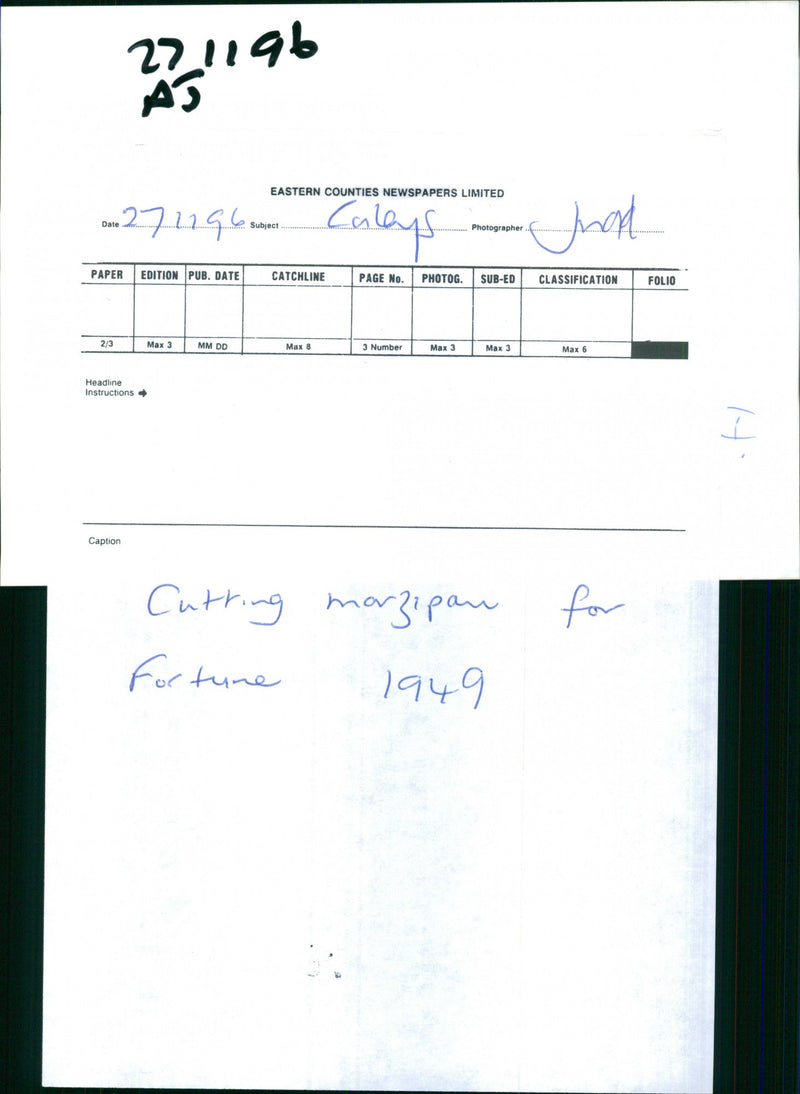 27 11 96
AJ
EASTERN COUNTIES NEWSPAPERS LIMITED
Date 27 11 96 Subject Caleys Photographer
PAPER EDITION PUB. DATE CATCHLINE PAGE No. PHOTOG. SUB-ED CLASSIFICATION FOLIO
2/3 Max 3 MM DD Max 8 3 Number Max 3 Max 3 Max 6
Headline
Instructions
Caption
Cutting marzipan for
Fortune 1949